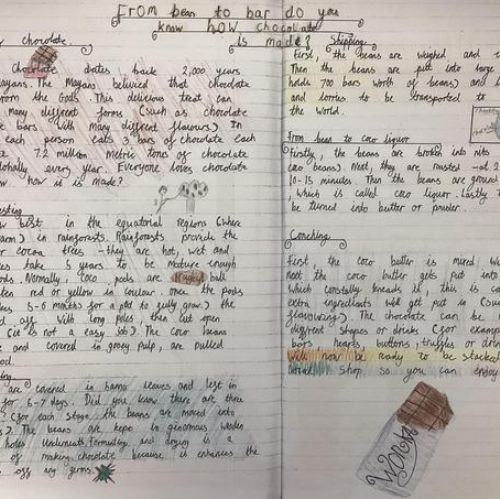 From bean to bar do you
know how chocolate
is made?
chocolate
Chocolate dates back 2,000 years
Mayans. The Mayans belived that chocolate
from the Gods. This delicious treat can
many different forms (such as chocolate
bars with many different flavours) In
each person eats 3 bars of chocolate each
7.2 million metric tons of chocolate
globally every year. Everyone loves chocolate
how it is made?
best in the equatorial regions (where
warm) in rainforests. Rainforests provide the
for cocoa trees - they are hot, wet and
take 5 years to be mature enough
pods. Normally, coco pods are
red or yellow in colour. once the pods
5-6 months for a pod to fully grow) the
off with long poles, then cut open
(it is not a easy job). The coco beans
and covered in gooey pulp, are pulled
are covered in banana leaves and left in
for 6-7 days. Did you know there are three
for each stage the beans are moved into
The beans are kept in ginormous wooden
holes underneath. formenting and drying is a
of making chocolate because it enhances the
off any germs.
Shipping
First, the beans are weighed and
Then the beans are put into large
holds 700 bars worth of beans) and
and lorries to be transported to
the world.
From bean to coco liquor
Firstly, the beans are broken into nibs
beans). Next, they are roasted
10-15 minutes. Then the beans are ground
, which is called coco liquor. Lastly
be turned into butter or powder.
Conching
First, the coco butter is mixed
next the coco butter gets put into
Which constantly kneads it, this is
extra ingredients will get put in
flavouring). The chocolate can be
different shapes or drinks (for example
bars, hearts, buttons, truffles or
will now be ready to be stacked
shop so you can enjoy
Wonka